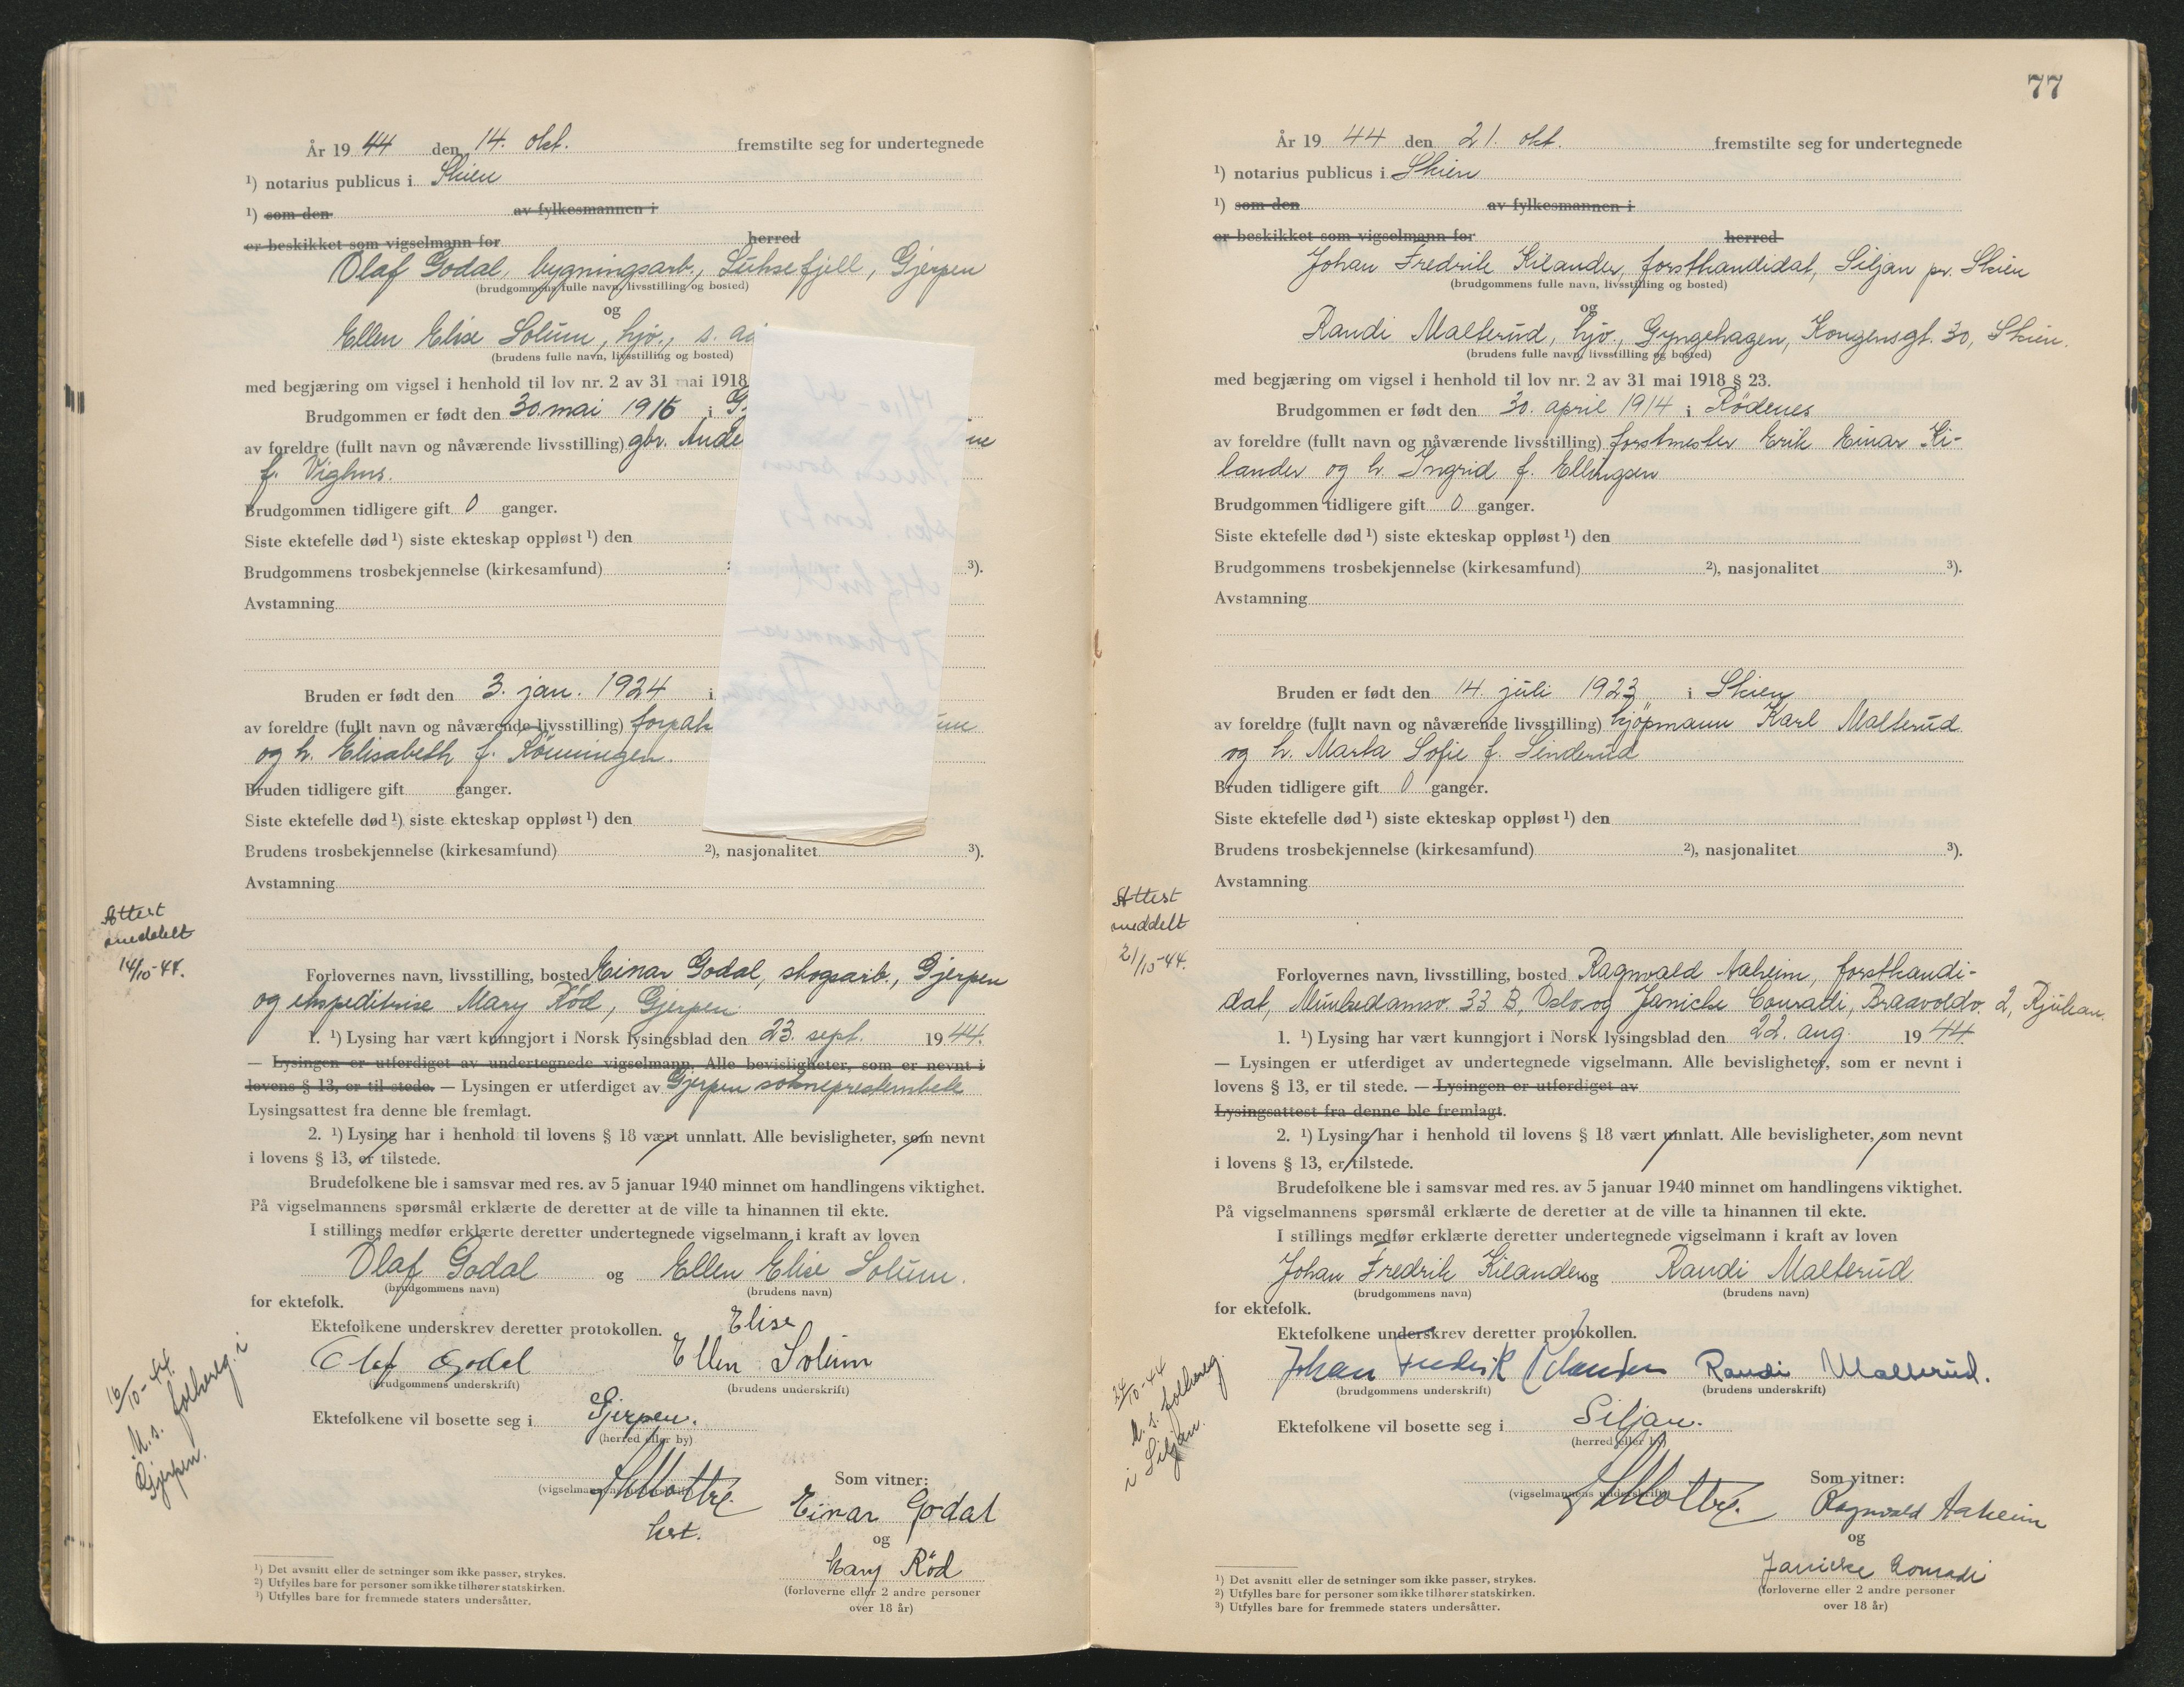 År 1944 den 14. okt. fremstilte seg for undertegnede
¹) notarius publicus i Skien
¹) som den av fylkesmannen i
er beskikket som vigselmann for herred
Olaf Godal, bygningsarb., Luksefjell, Gjerpen
(brudgommens fulle navn, livsstilling og bosted)
og
Ellen Elise Solum, hjv., s.
(brudens fulle navn, livsstilling og bosted)
med begjæring om vigsel i henhold til lov nr. 2 av 31 mai 1918
Brudgommen er født den 30. mai 1916 i G
av foreldre (fullt navn og nåværende livsstilling) gbr. Ande ne
f. Vighus.
Brudgommen tidligere gift 0 ganger.
Siste ektefelle død ¹) siste ekteskap oppløst ¹) den
Brudgommens trosbekjennelse (kirkesamfund) ³).
Avstamning
Bruden er født den 3. jan. 1924 i
av foreldre (fullt navn og nåværende livsstilling) forpak um
og h. Elisabeth f. Rönningen.
Bruden tidligere gift ganger.
Siste ektefelle død ¹) siste ekteskap oppløst ¹) den
Brudens trosbekjennelse (kirkesamfund) ²), nasjonalitet ³).
Avstamning
Attest
meddelt
14/10-44.
Forlovernes navn, livsstilling, bosted Einar Godal, skogsarb., Gjerpen
og ekspeditrise Mary Röd, Gjerpen
1. ¹) Lysing har vært kunngjort i Norsk lysingsblad den 23. sept. 1944.
— Lysingen er utferdiget av undertegnede vigselmann. Alle bevisligheter, som er nevnt i
lovens § 13, er til stede. — Lysingen er utferdiget av Gjerpen sokneprestembete
Lysingsattest fra denne ble fremlagt.
2. ¹) Lysing har i henhold til lovens § 18 vært unnlatt. Alle bevisligheter, som nevnt
i lovens § 13, er tilstede.
Brudefolkene ble i samsvar med res. av 5 januar 1940 minnet om handlingens viktighet.
På vigselmannens spørsmål erklærte de deretter at de ville ta hinannen til ekte.
I stillings medfør erklærte deretter undertegnede vigselmann i kraft av loven
Olaf Godal og Ellen Elise Solum.
(brudgommens navn) (brudens navn)
for ektefolk.
Ektefolkene underskrev deretter protokollen.
Elise
Olaf Godal Ellen Solum
(brudgommens underskrift) (brudens underskrift)
16/10-44.
M. s. folkereg. i
Gjerpen.
Ektefolkene vil bosette seg i Gjerpen.
(herred eller by)
Som vitner:
(vigselmannens underskrift)
Einar Godal
og
Mary Röd
(forloverne eller 2 andre personer
over 18 år)
¹) Det avsnitt eller de setninger som ikke passer, strykes.
²) Utfylles bare for personer som ikke tilhører statskirken.
³) Utfylles bare for fremmede staters undersåtter.
77
År 1944 den 21. okt. fremstilte seg for undertegnede
¹) notarius publicus i Skien
¹) som den av fylkesmannen i
er beskikket som vigselmann for herred
Johan Fredrik Kilander, forstkandidat, Siljan pr. Skien
(brudgommens fulle navn, livsstilling og bosted)
og
Randi Malterud, hjv., Gyngehagen, Kongensgt. 30, Skien.
(brudens fulle navn, livsstilling og bosted)
med begjæring om vigsel i henhold til lov nr. 2 av 31 mai 1918 § 23.
Brudgommen er født den 30. april 1914 i Rödenes
av foreldre (fullt navn og nåværende livsstilling) forstmester Erik Einar Ki-
lander og h. Ingrid f. Ellingsen
Brudgommen tidligere gift 0 ganger.
Siste ektefelle død ¹) siste ekteskap oppløst ¹) den
Brudgommens trosbekjennelse (kirkesamfund) ²), nasjonalitet ³).
Avstamning
Bruden er født den 14. juli 1923 i Skien
av foreldre (fullt navn og nåværende livsstilling) kjöpmann Karl Malterud
og h. Marta Sofie f. Linderud
Bruden tidligere gift 0 ganger.
Siste ektefelle død ¹) siste ekteskap oppløst ¹) den
Brudens trosbekjennelse (kirkesamfund) ²), nasjonalitet ³).
Avstamning
Attest
meddelt
21/10-44.
Forlovernes navn, livsstilling, bosted Ragnvald Aaheim, forstkandi-
dat, Munkedamsv. 33 B, Oslo og Janicke Conradi, Braavoldv. 2, Rjukan.
1. ¹) Lysing har vært kunngjort i Norsk lysingsblad den 22. aug. 1944
— Lysingen er utferdiget av undertegnede vigselmann. Alle bevisligheter, som er nevnt i
lovens § 13, er til stede. — Lysingen er utferdiget av
Lysingsattest fra denne ble fremlagt.
2. ¹) Lysing har i henhold til lovens § 18 vært unnlatt. Alle bevisligheter, som nevnt
i lovens § 13, er tilstede.
Brudefolkene ble i samsvar med res. av 5 januar 1940 minnet om handlingens viktighet.
På vigselmannens spørsmål erklærte de deretter at de ville ta hinannen til ekte.
I stillings medfør erklærte deretter undertegnede vigselmann i kraft av loven
Johan Fredrik Kilander og Randi Malterud
(brudgommens navn) (brudens navn)
for ektefolk.
Ektefolkene underskrev deretter protokollen.
Johan Fredrik Kilander Randi Malterud.
(brudgommens underskrift) (brudens underskrift)
24/10-44
M. s. folkereg.
i Siljan.
Ektefolkene vil bosette seg i Siljan.
(herred eller by)
Som vitner:
(vigselmannens underskrift)
Ragnvald Aaheim
og
Janicke Conradi
(forloverne eller 2 andre personer
over 18 år)
¹) Det avsnitt eller de setninger som ikke passer, strykes.
²) Utfylles bare for personer som ikke tilhører statskirken.
³) Utfylles bare for fremmede staters undersåtter.